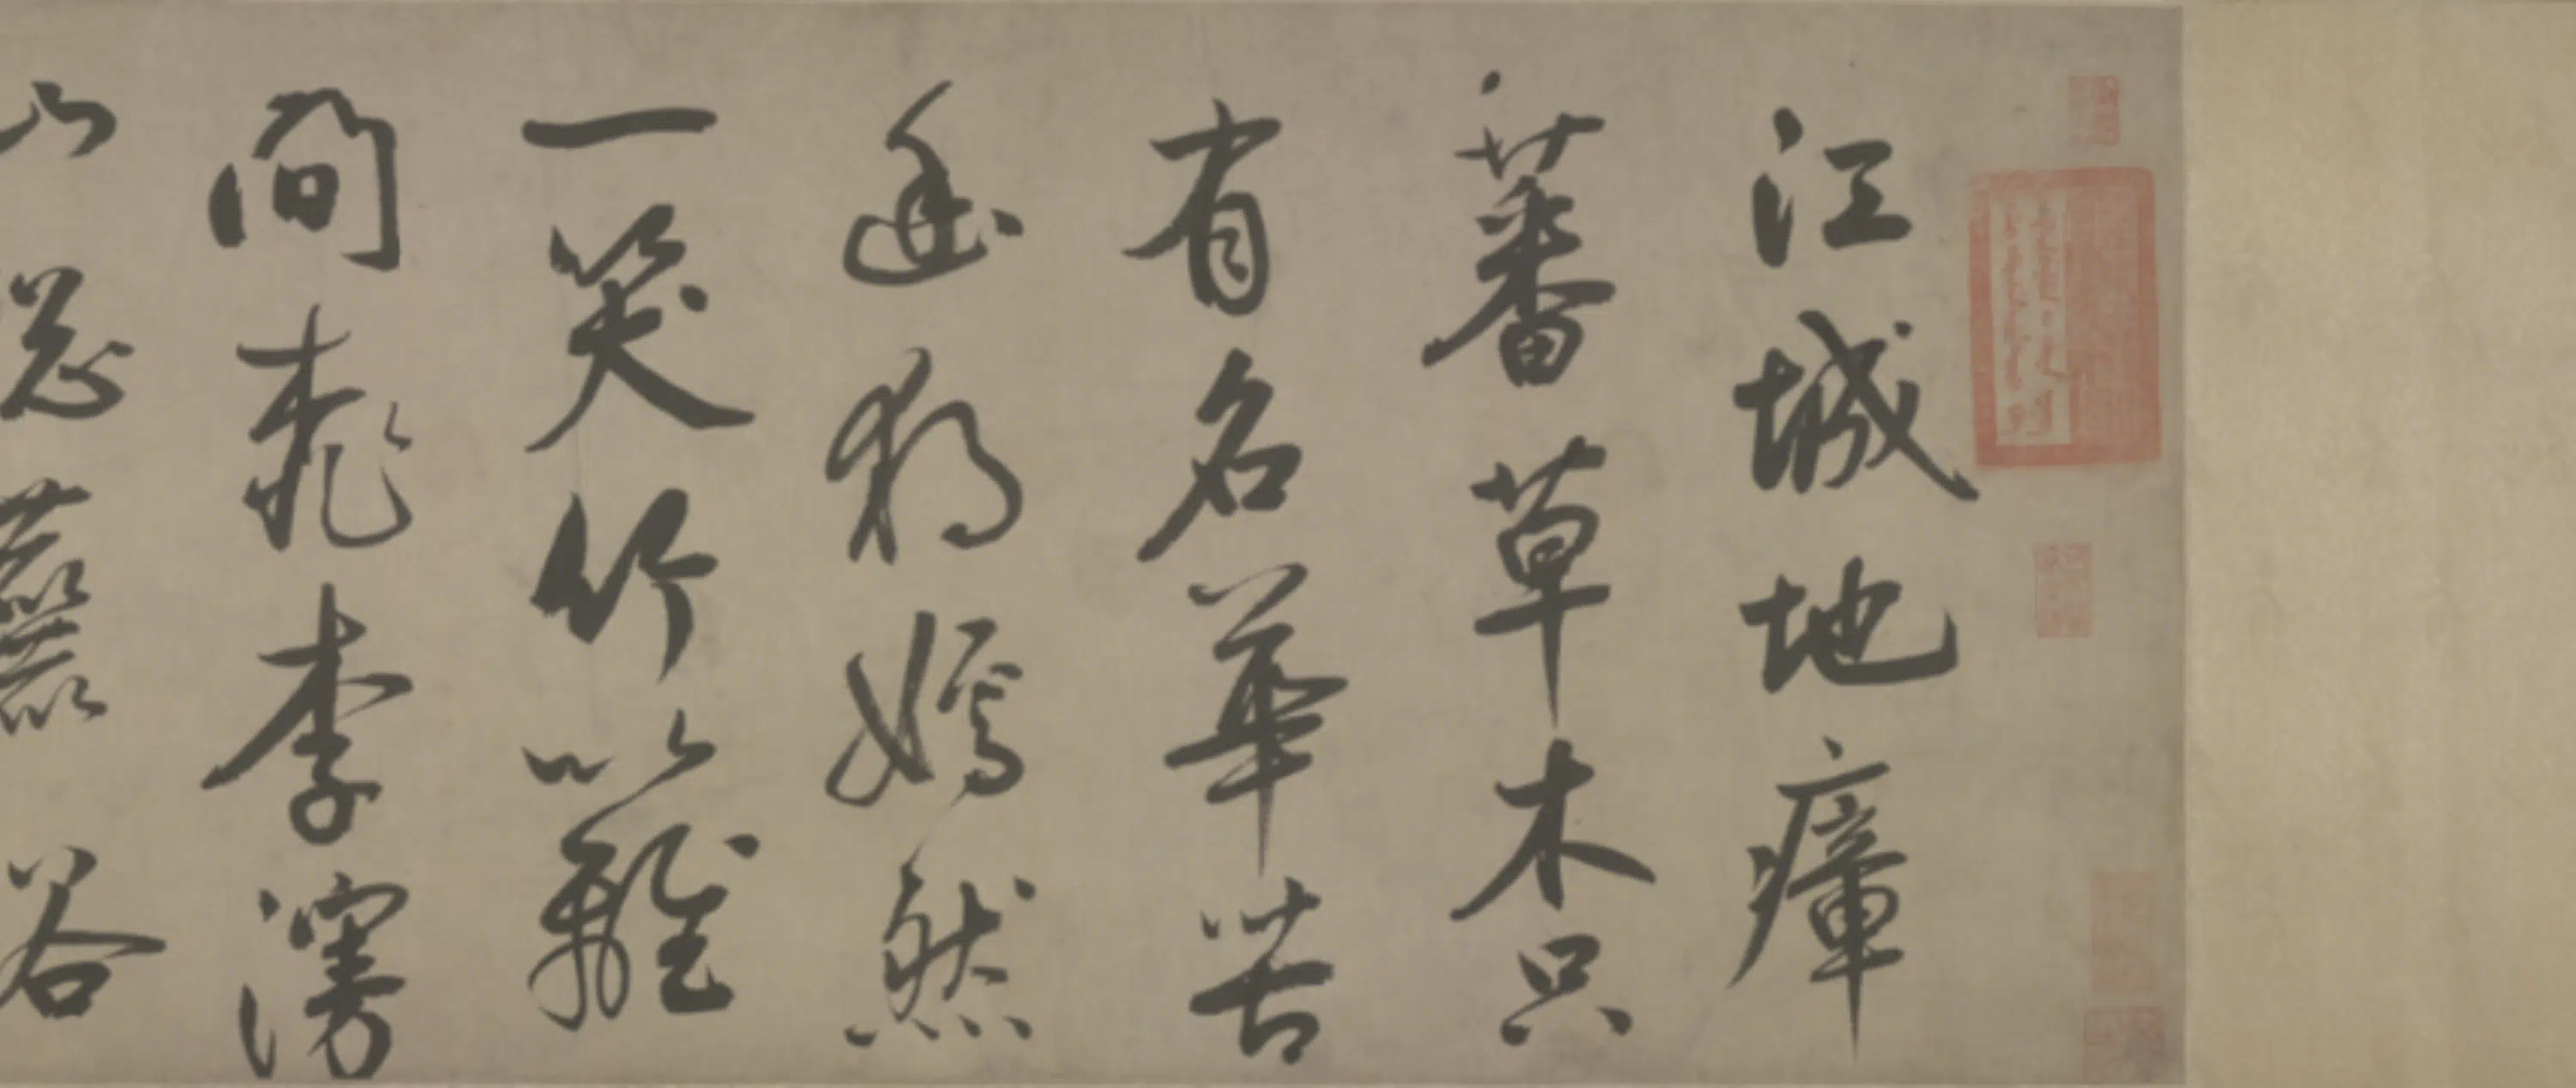 江城地瘴
蕃草木只
有名華苦
幽獨嫣然
一笑竹籬
間桃李漫
山总麤俗